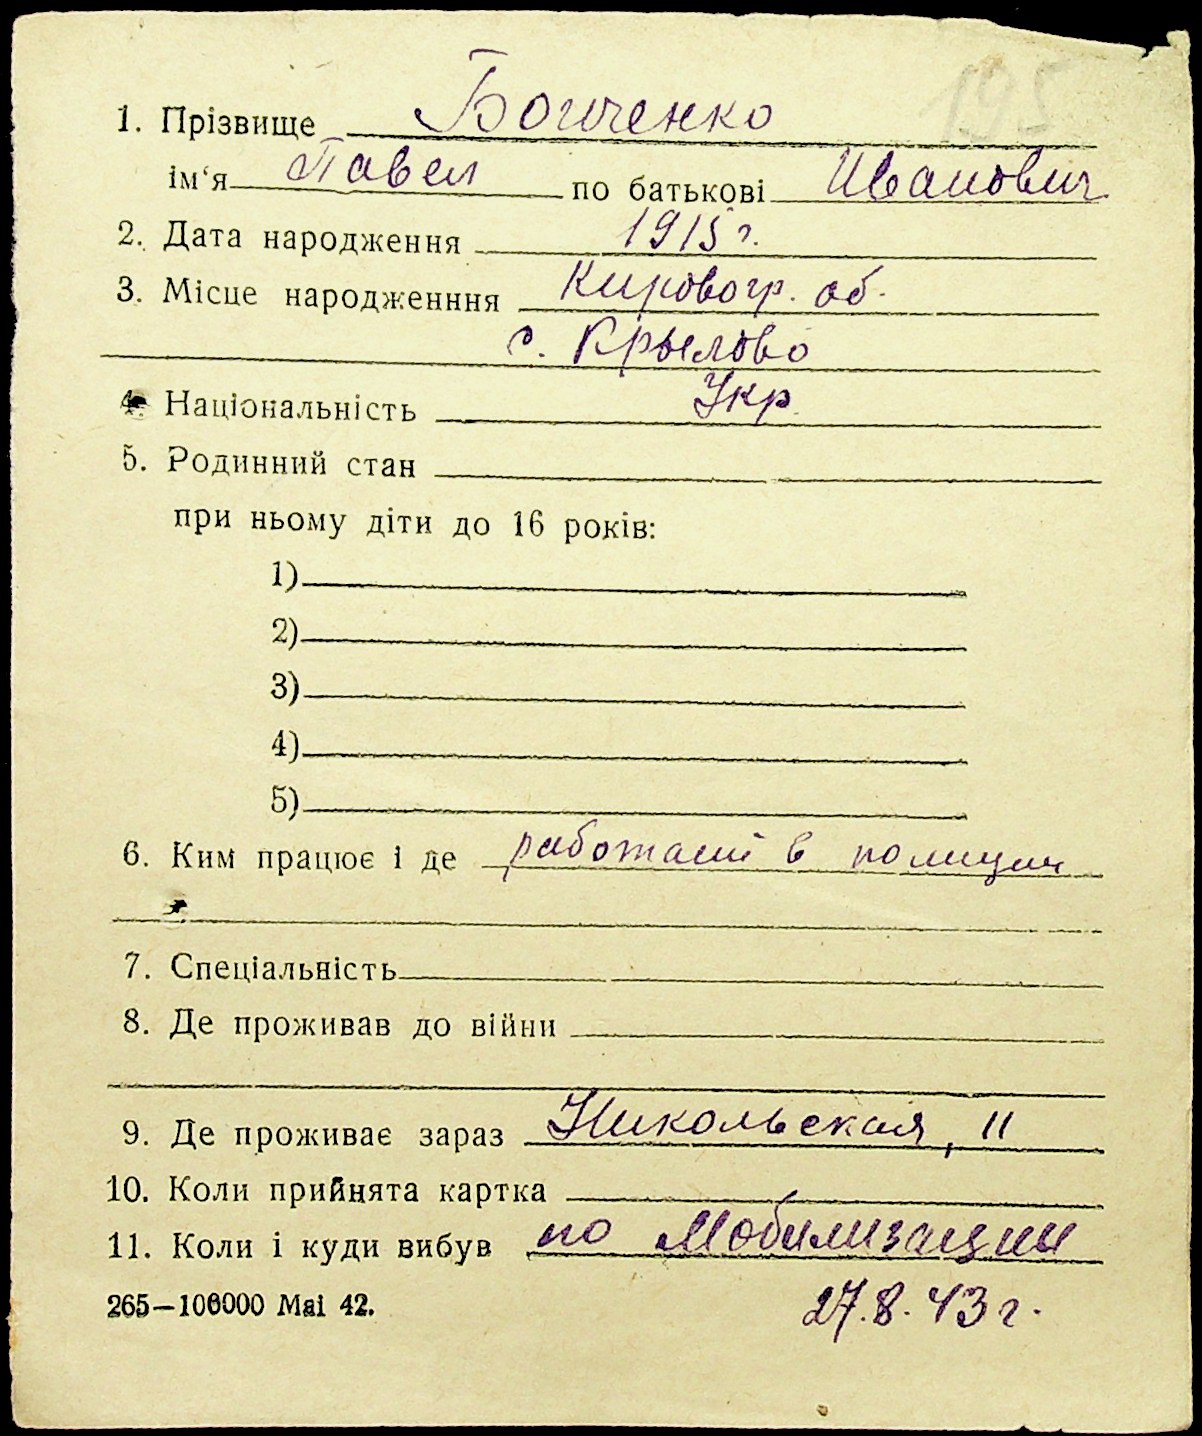 195
1. Прізвище Богиченко
ім‘я Павел по батькові Иванович
2. Дата народження 1915 г.
3. Місце народженння Кировогр. об.
г. Крылово
4. Національність Укр.
5. Родинний стан
при ньому діти до 16 років:
1)
2)
3)
4)
5)
6. Ким працює і де работает в полиции
7. Спеціальність
8. Де проживав до війни
9. Де проживає зараз Никольская, 11
10. Коли прийнята картка
11. Коли і куди вибув по Мобилизации
265—100000 Mai 42. 27.8.43 г.